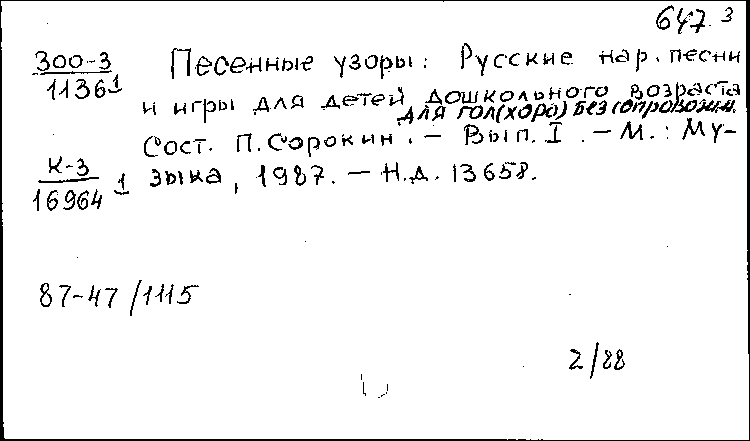 647.3
300-3
11361
Песенные узоры: Русские нар. песни
и игры для детей дошкольного возраста
для гол(хора) без сопровожд.
Сост. П. Сорокин. – Вып. I. – М.: Му-
К-3
16964 1
зыка, 1987. – Н.д. 13658.
87-47/1115
2/88